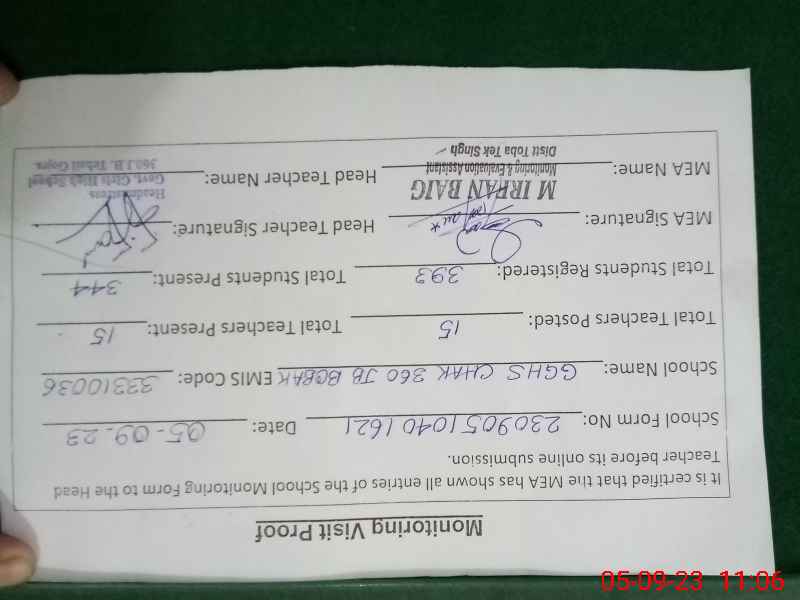 Monitoring Visit Proof
It is certified that the MEA has shown all entries of the School Monitoring Form to the Head
Teacher before its online submission.
School Form No: 23090510401621 Date: 05-09-23
School Name: GGHS CHAK 360 JB BOBAK EMIS Code: 33310036
Total Teachers Posted: 15 Total Teachers Present: 15
Total Students Registered: 393 Total Students Present: 344
MEA Signature: Head Teacher Signature:
M IRFAN BAIG Headmistress
MEA Name: Monitoring & Evaluation Assistant Head Teacher Name: Govt. Girls High School
Distt Toba Tek Singh 360 J.B. Tehsil Gojra
05-09-23 11:06